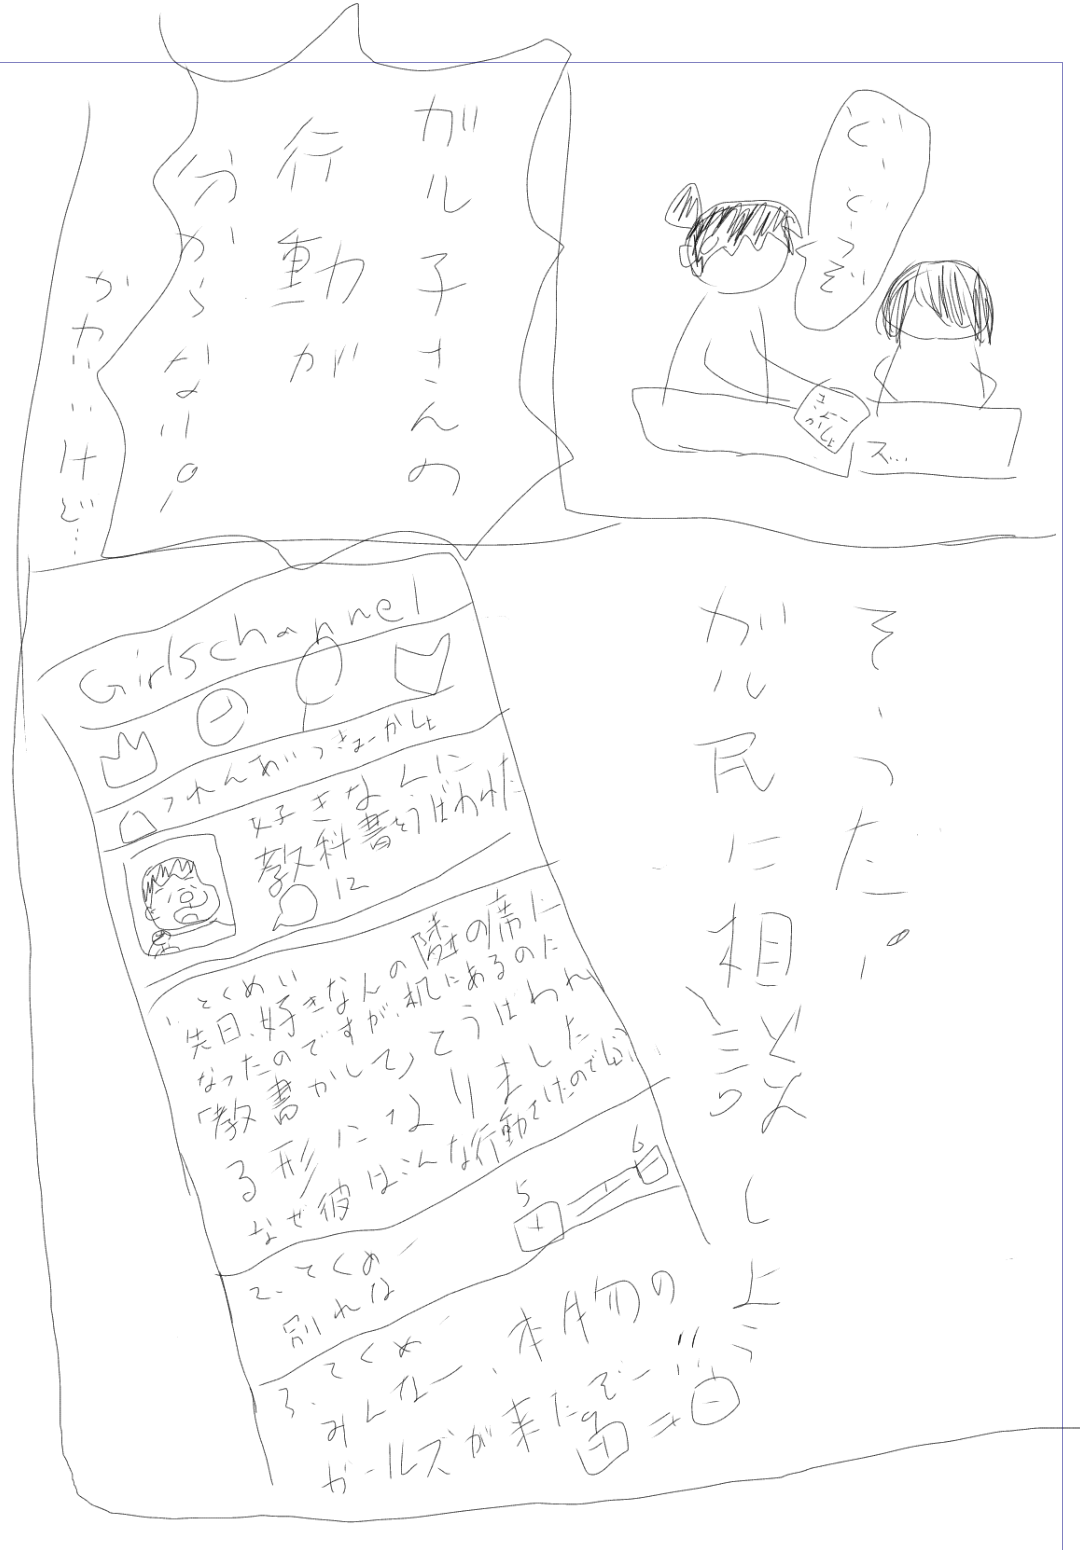 ど、どうぞ
きょーかしょ
ス…
ガル子さんの
行動が
分からない。
かわいいけど…
そうだ!
ガル民に相談しよ
Girlschannel
れんあいっきょーかしょ
好きな人に
教科書をうばわれた
12
1. とくめい
先日、好きな人の隣の席に
なったのですが、机にあるのた
「教書かして」とうばわれ
る形になりました
なぜ彼はこんな行動をしたのでしょ
5
6
2. とくめー
別れな
3. とくめ
みんなー、本物の
ガールズが来たぞー!!